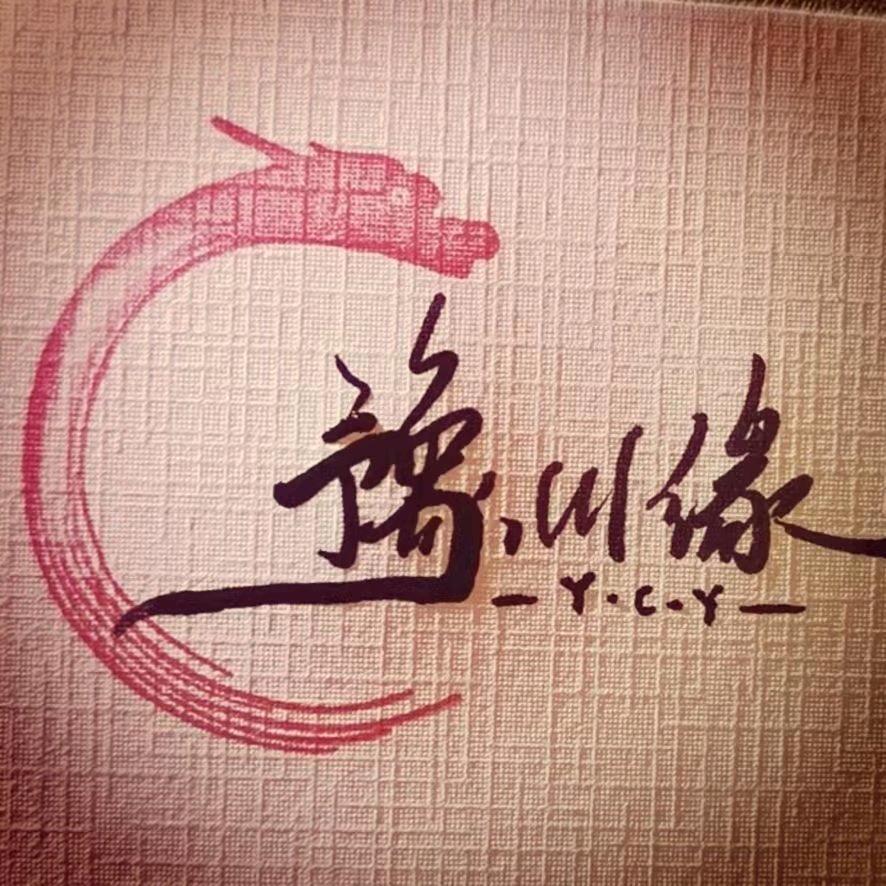 豫川缘
— Y·C·Y —